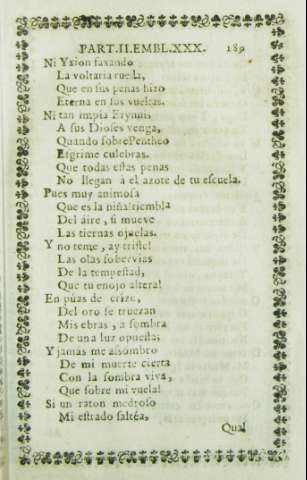 PART.II.EMBL.XXX. 189
Ni Yxion saxando
La voltaria rueda,
Que en sus penas hizo
Eterna en sus vueltas.
Ni tan impia Erynnis
A sus Dioses venga,
Quando sobre Pentheo
Esgrime culebras.
Que todas estas penas
No llegan à el azote de tu escuela.
Pues muy animosa
Que es la niña tiembla
Del áire, si mueve
Las tiernas ojuelas.
Y no teme, ay triste!
Las olas sobervias
De la tempestad,
Que tu enojo altera!
En púas de erize,
Del oro se truezan
Mis ebras, a sombra
De una luz opuesta:
Y jamas me assombro
De mi muerte cierta
Con la sombra viva,
Que sobre mi vuela!
Si un raton medroso
Mi estrado saltéa,
Qual